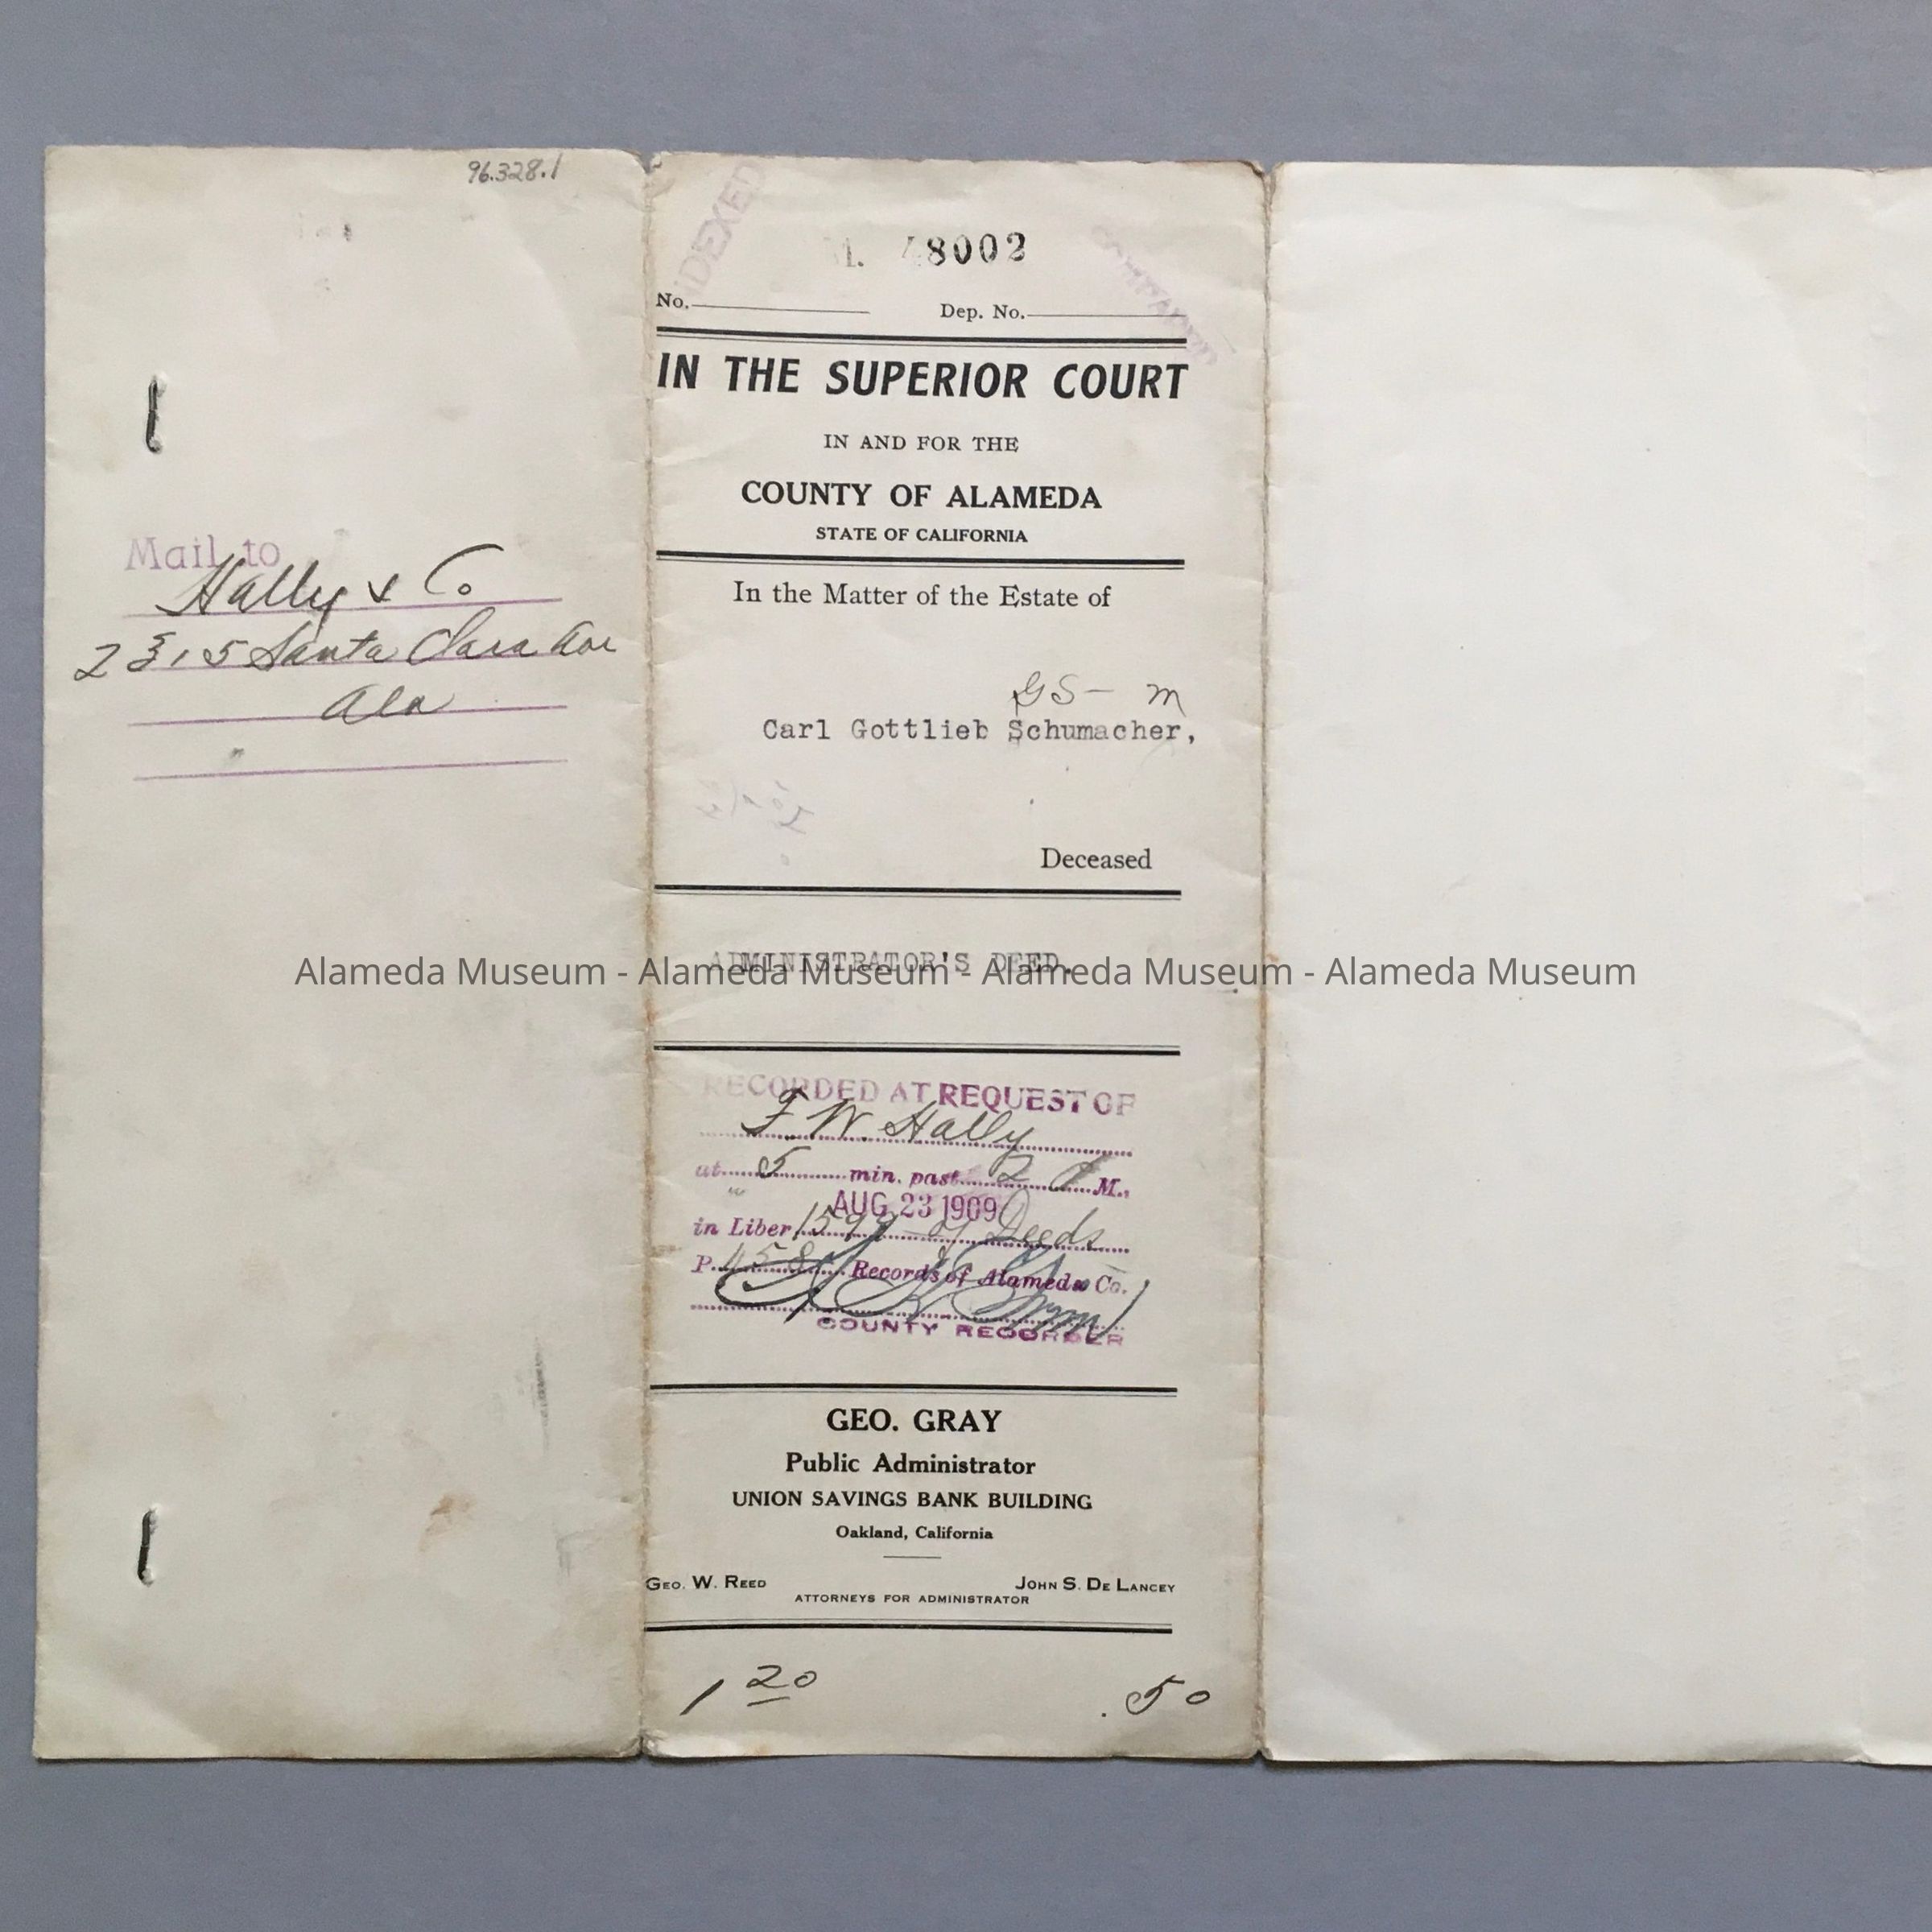 96.328.1
Mail to
Hally & Co
2315 Santa Clara Ave
Ala
INDEXED
COMPARED
48002
No. Dep. No.
IN THE SUPERIOR COURT
IN AND FOR THE
COUNTY OF ALAMEDA
STATE OF CALIFORNIA
In the Matter of the Estate of
GS - M
Carl Gottlieb Schumacher,
Deceased
ADMINISTRATOR'S DEED.
Alameda Museum - Alameda Museum - Alameda Museum - Alameda Museum
RECORDED AT REQUEST OF
F. W. Hally
at 5 min. past 2 P M.
AUG 23 1909
in Liber 1599 of Deeds
P. 458 Records of Alameda Co.
COUNTY RECORDER
GEO. GRAY
Public Administrator
UNION SAVINGS BANK BUILDING
Oakland, California
GEO. W. REED JOHN S. DE LANCEY
ATTORNEYS FOR ADMINISTRATOR
1 20 .50